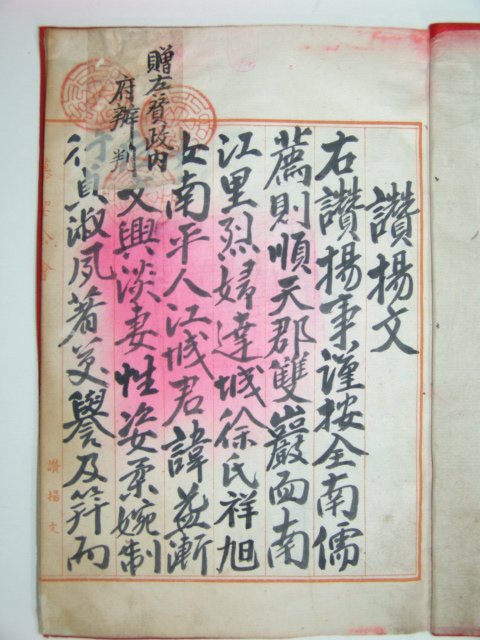 讚揚文
右讚揚事謹按全南儒
薦則順天郡雙巖面南
江里烈婦達城徐氏祥旭
女南平人江城君諱益漸
文興淡妻性姿柔婉制
行貞淑夙著英譽及笄而
贈左贊政內
府辦判
讚揚文